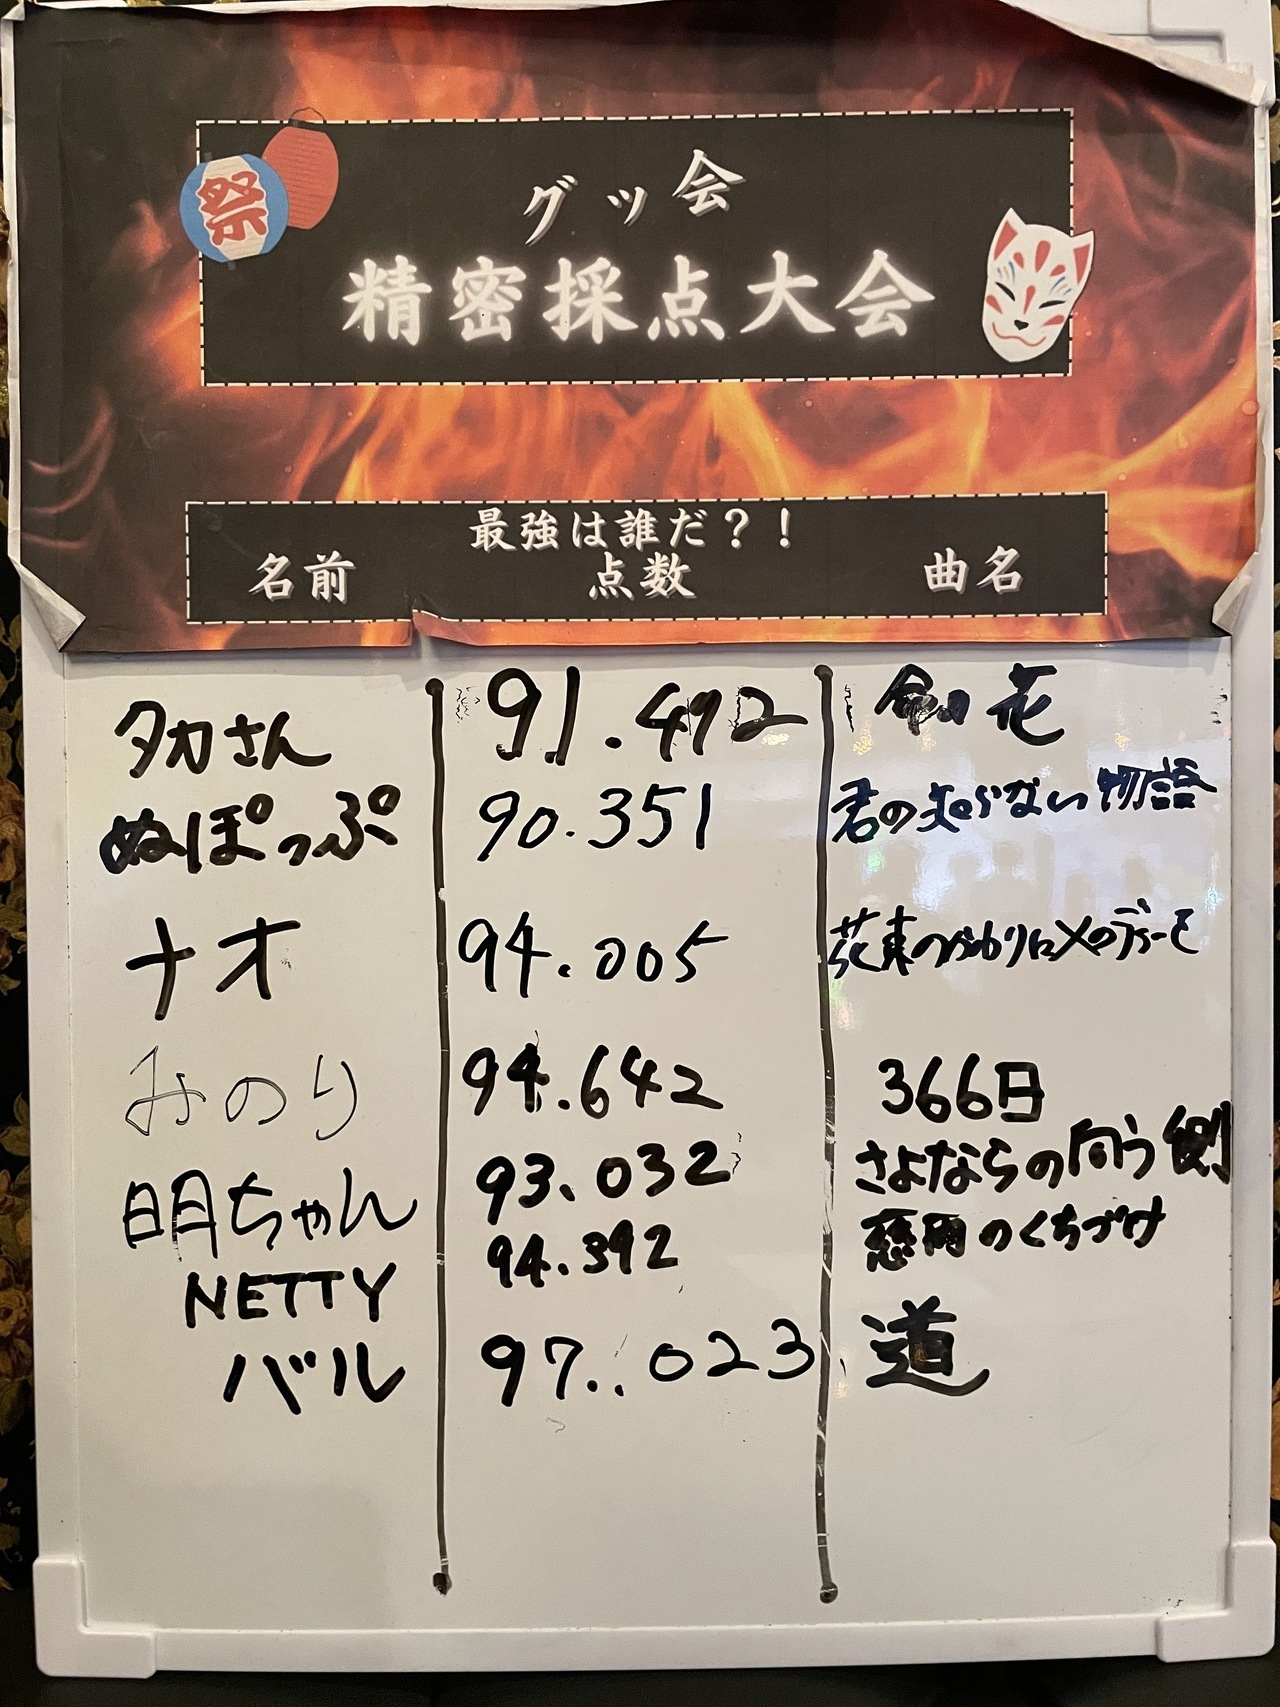 祭
グッ会
精密採点大会
最強は誰だ？！
名前 点数 曲名
タカさん 91.492 命の花
ぬぽっぷ 90.351 君の知らない物語
ナオ 94.005 花束のかわりにメロディーを
みのり 94.642 366日
明ちゃん 93.032 さよならの向う側
NETTY 94.392 慈雨のくちづけ
バル 97.023 道